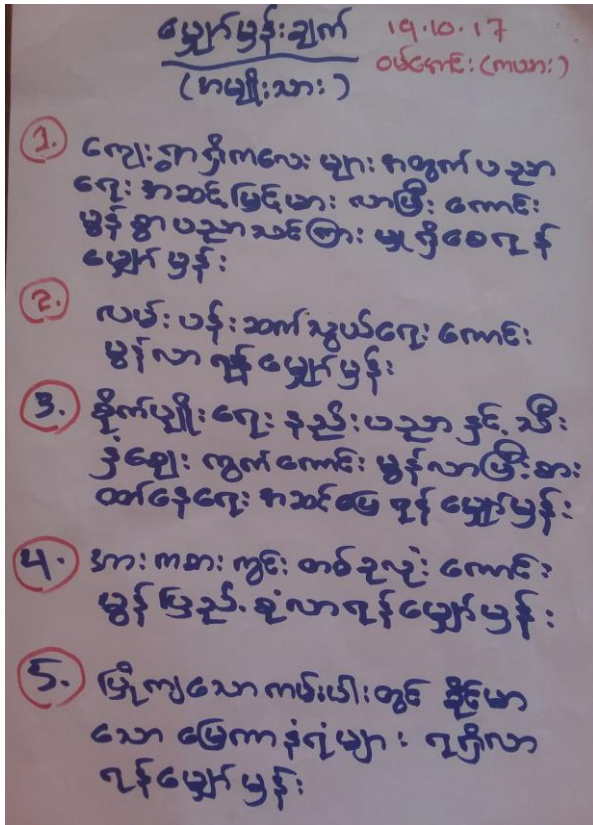 မျှော်မှန်းချက်
19.10.17
(အမျိုးသား)
ဝမ်ကောင်း (ကယား)
1. ကျေးရွာရှိကလေးများ အတွက်ပညာ
ရေး အဆင့်မြင့်မား လာပြီး ကောင်း
မွန်စွာပညာသင်ကြား မှုရှိစေရန်
မျှော်မှန်း
2. လမ်းပန်းဆက်သွယ်ရေး ကောင်း
မွန်လာရန်မျှော်မှန်း
3. စိုက်ပျိုးရေး နည်းပညာနှင့် သီး
နှံဈေး ကွက်ကောင်း မွန်လာပြီးစား
ဝတ်နေရေး အဆင်ပြေရန် မျှော်မှန်း
4. အားကစားကွင်း တစ်ခုလုံး ကောင်း
မွန်ပြည့်စုံလာရန်မျှော်မှန်း
5. ပြိုကျသောကမ်းပါးတွင် ခိုင်မာ
သော မြေကာနံရံများ ရရှိလာ
ရန်မျှော်မှန်း